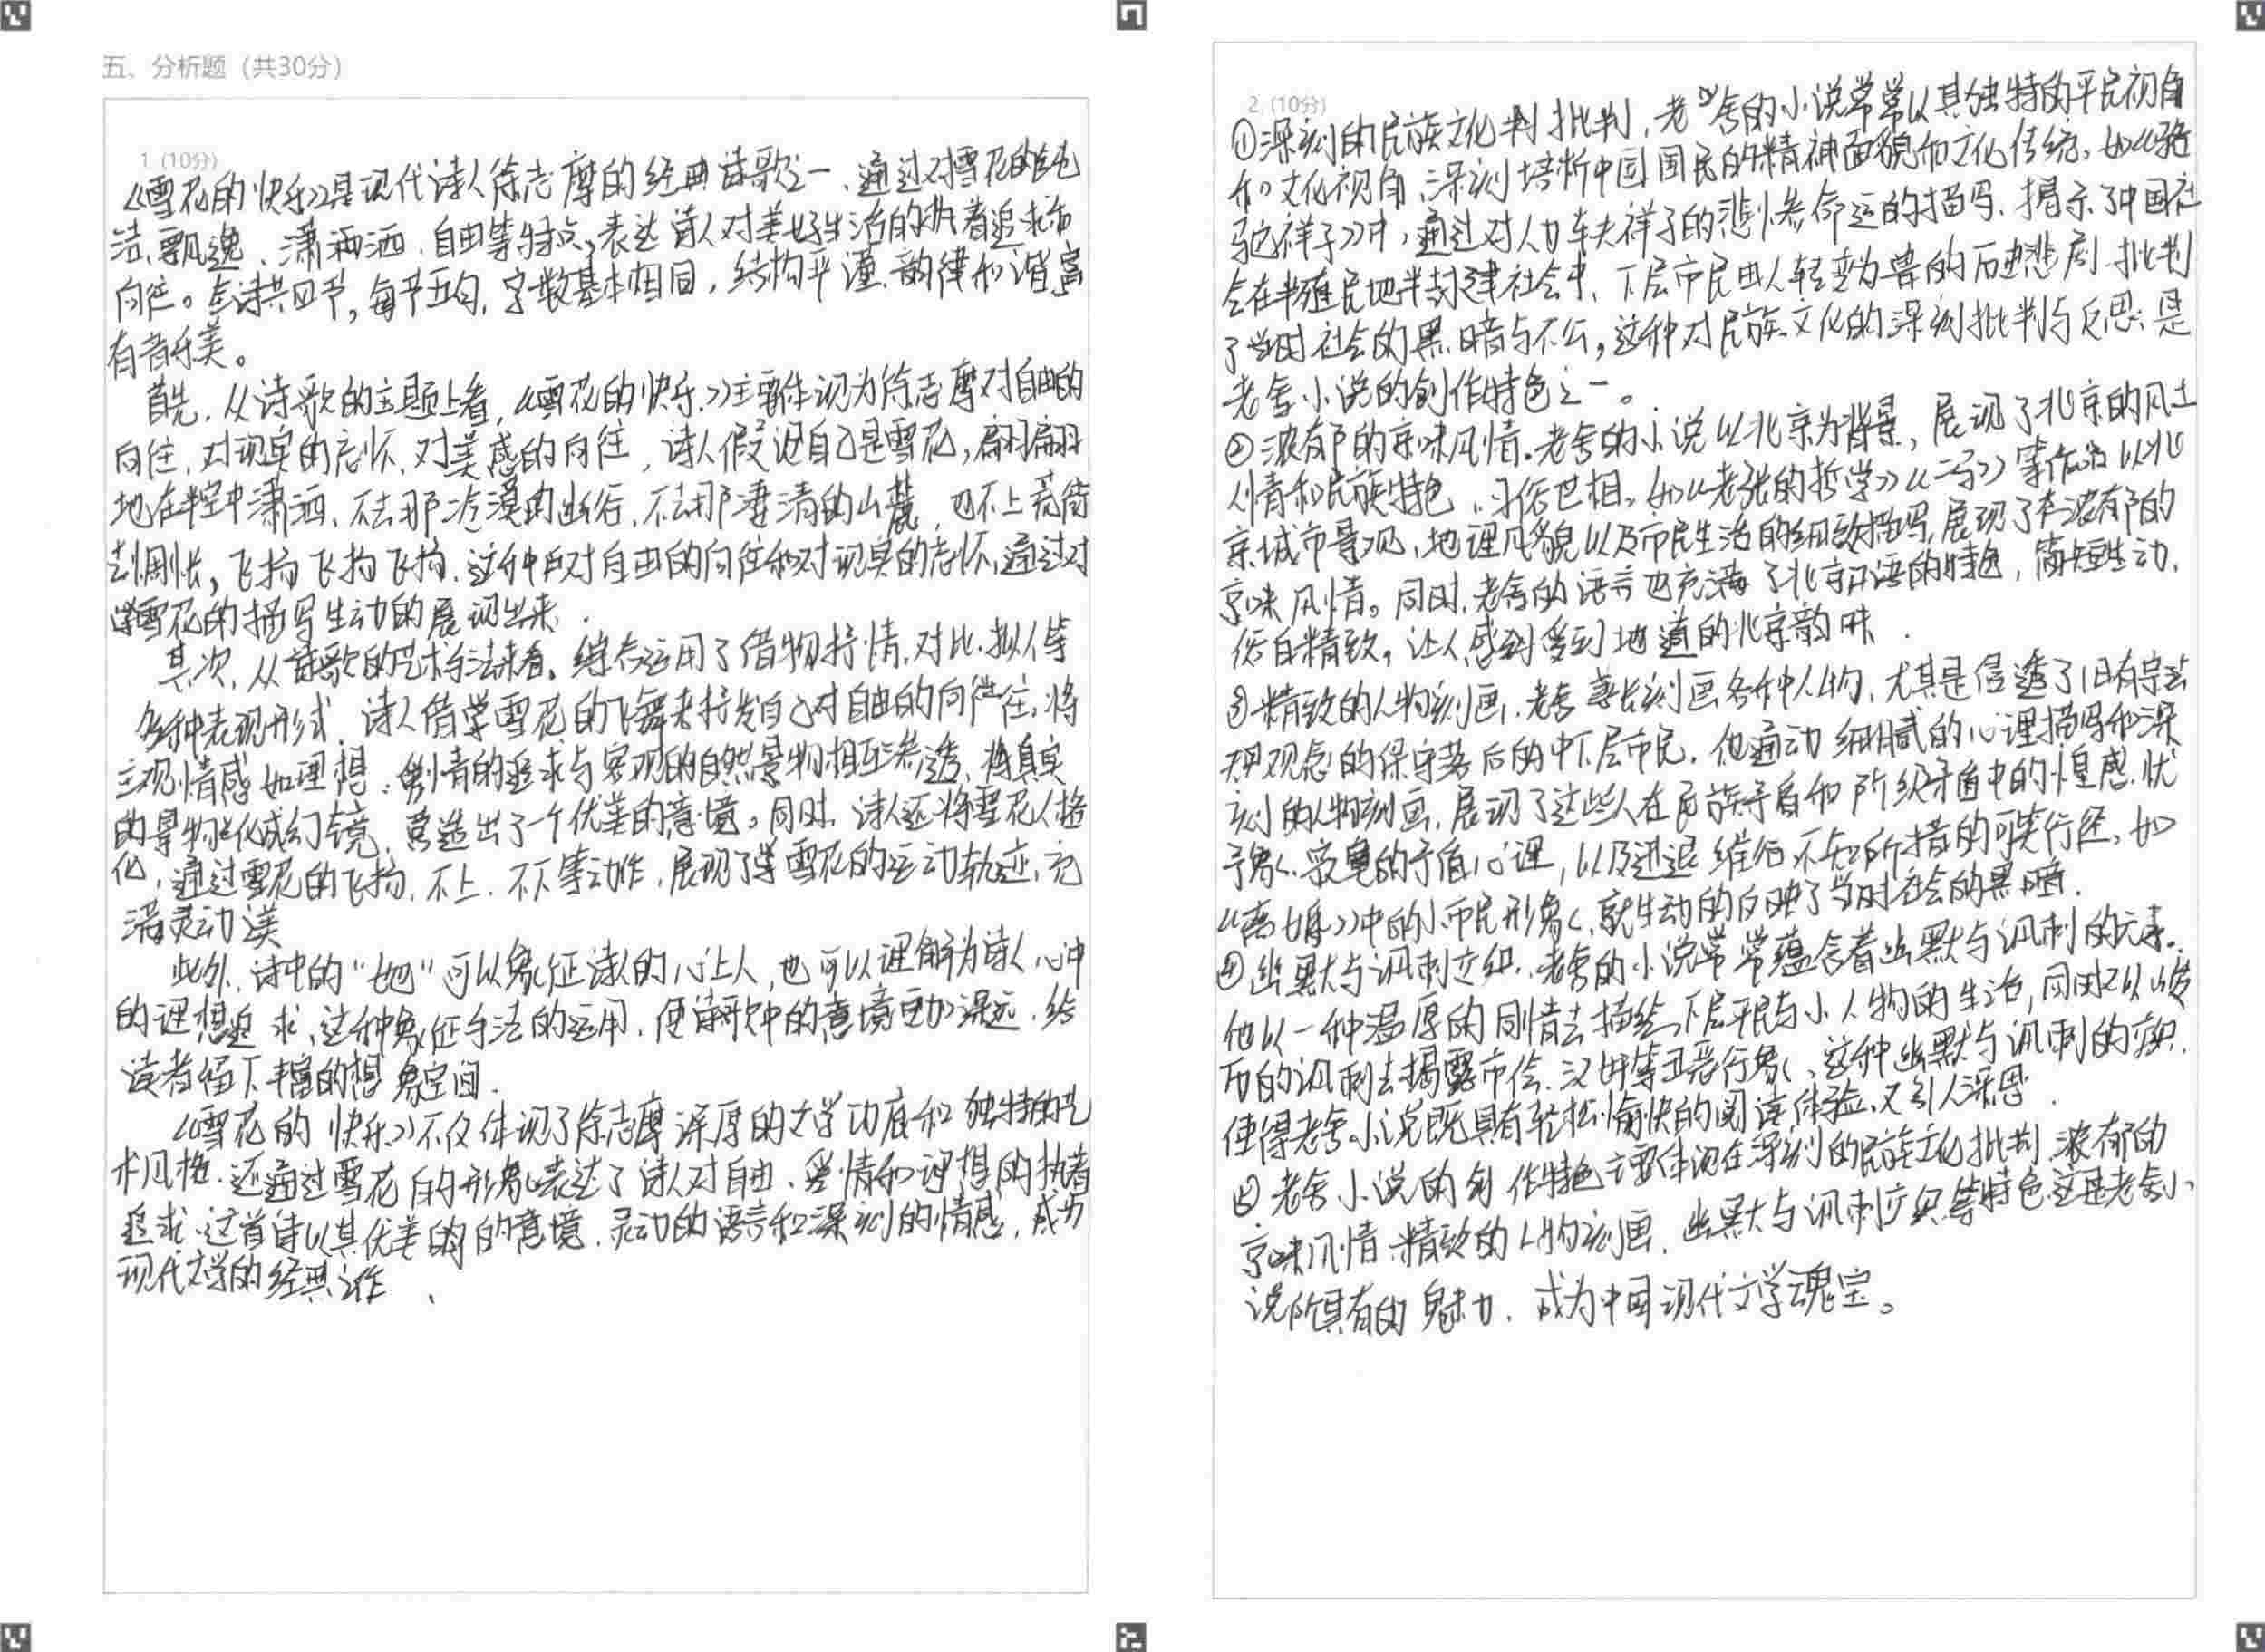 五、分析题（共30分）
1（10分）
《雪花的快乐》是现代诗人徐志摩的经典诗歌之一、通过对雪花的纯
洁、飘逸、潇洒洒、自由等特点，表达诗人对美好生活的执着追求和
向往。全诗共四节，每节五句，字数基本相同，结构严谨、韵律和谐富
有音乐美。
首先，从诗歌的主题上看，《雪花的快乐》主要体现为徐志摩对自由的
向往，对现实的忘怀，对美感的向往，诗人假设自己是雪花，翩翩
地在半空中潇洒、不去那冷漠的幽谷，不去那凄清的山麓，也不上荒街
去惆怅，飞扬飞扬飞扬，这种对自由的向往和对现实的忘怀，通过对
雪花的描写生动的展现出来．
其次，从诗歌的艺术手法来看，综合运用了借物抒情，对比，拟人等
多种表现形式，诗人借雪花的飞舞来抒发自己对自由的向往，将
主观情感如理想、爱情的追求与客观的自然景物相互渗透，将真实
的景物化成幻镜，营造出了一个优美的意境。同时，诗人还将雪花人格
化，通过雪花的飞扬，不上，不下等动作，展现了雪花的运动轨迹，充
满灵动美
此外，诗中的“她”可以象征诗人的心上人，也可以理解为诗人心中
的理想追求，这种象征手法的运用，使诗歌中的意境更加深远，给
读者留下丰富的想象空间．
《雪花的快乐》不仅体现了徐志摩深厚的文学功底和独特的艺
术风格，还通过雪花的形象表达了诗人对自由、爱情和理想的执着
追求，这首诗以其优美的的意境，灵动的语言和深刻的情感，成为
现代文学的经典之作．
2（10分）
①深刻的民族文化判批判，老舍的小说常常以其独特的平民视角
和文化视角，深刻培析中国国民的精神面貌和文化传统，如《骆
驼祥子》中，通过对人力车夫祥子的悲惨命运的描写，揭示了中国社
会在半殖民地半封建社会中，下层市民由人转变为兽的历史悲剧，批判
了当时社会的黑暗与不公，这种对民族文化的深刻批判与反思是
老舍小说的创作特色之一。
②浓郁的京味风情。老舍的小说以北京为背景，展现了北京的风土
人情和民族特色，习俗世相，如《老张的哲学》《二马》等作品以北
京城市景观，地理风貌以及市民生活的细致描写，展现了浓郁的
京味风情。同时，老舍的语言也充满了北京口语的特色，简短生动，
俗白精致，让人感到受到地道的北京韵味．
③精致的人物刻画，老舍善长刻画各种人物，尤其是侵透了旧有宗法
观念的保守落后的中下层市民，他通动细腻的心理描写和深
刻的人物刻画，展现了这些人在民族矛盾和阶级矛盾中的惶惑，犹
予，寂寞的矛盾心理，以及进退维谷不知所措的可笑行径，如
《离婚》中的小市民形象，就生动的反映了当时社会的黑暗．
④幽默与讽刺交织，老舍的小说常常蕴含着幽默与讽刺的元素．
他以一种温厚的同情去描绘下层平民与小人物的生活，同时又以
的讽刺去揭露市侩、汉奸等丑恶行象，这种幽默与讽刺的交织，
使得老舍小说既具有轻松愉快的阅读体验，又引人深思．
⑤老舍小说的创作特色主要体现在深刻的民族文化批判，浓郁的
京味风情，精致的人物刻画，幽默与讽刺交织等特色，这是老舍小
说所具有的魅力，成为中国现代文学魂宝。